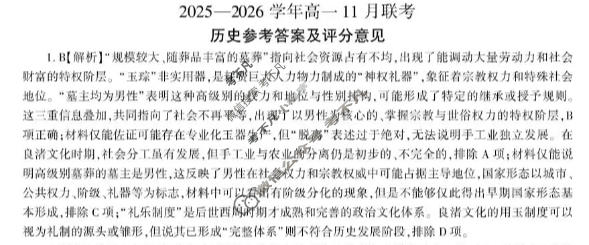 2025—2026 学年高一 11 月联考
历史参考答案及评分意见
1. B【解析】“规模较大、随葬品丰富的墓葬”指向社会资源占有不均,出现了能调动大量劳动力和社会
财富的特权阶层。“玉琮”非实用器,是耗费巨大人力物力制成的“神权礼器”,象征着宗教权力和特殊社会
地位。“墓主均为男性”表明这种高级别的权力和地位与性别挂钩,可能形成了特定的继承或授予规则。
这三重信息叠加,共同指向了社会不再平等,出现了以男性为核心的、掌握宗教与世俗权力的特权阶层,B
项正确;材料仅能佐证可能存在专业化玉器生产,但“脱离”表述过于绝对,无法说明手工业独立发展。在
良渚文化时期,社会分工虽有发展,但手工业与农业的分离仍是初步的、不完全的,排除 A 项;材料仅能说
明高级别墓葬的墓主是男性,这反映了男性在社会权力和宗教权威中可能占据主导地位,国家形态以城市、
公共权力、阶级、礼器等为标志,材料中可以看出有阶级分化的现象,但是不能够仅此得出早期国家形态基
本形成,排除 C 项;“礼乐制度”是后世西周时期才成熟和完善的政治文化体系。良渚文化的用玉制度可以
视为礼制的源头或雏形,但说其已形成“完整体系”则不符合历史发展阶段,排除 D 项。